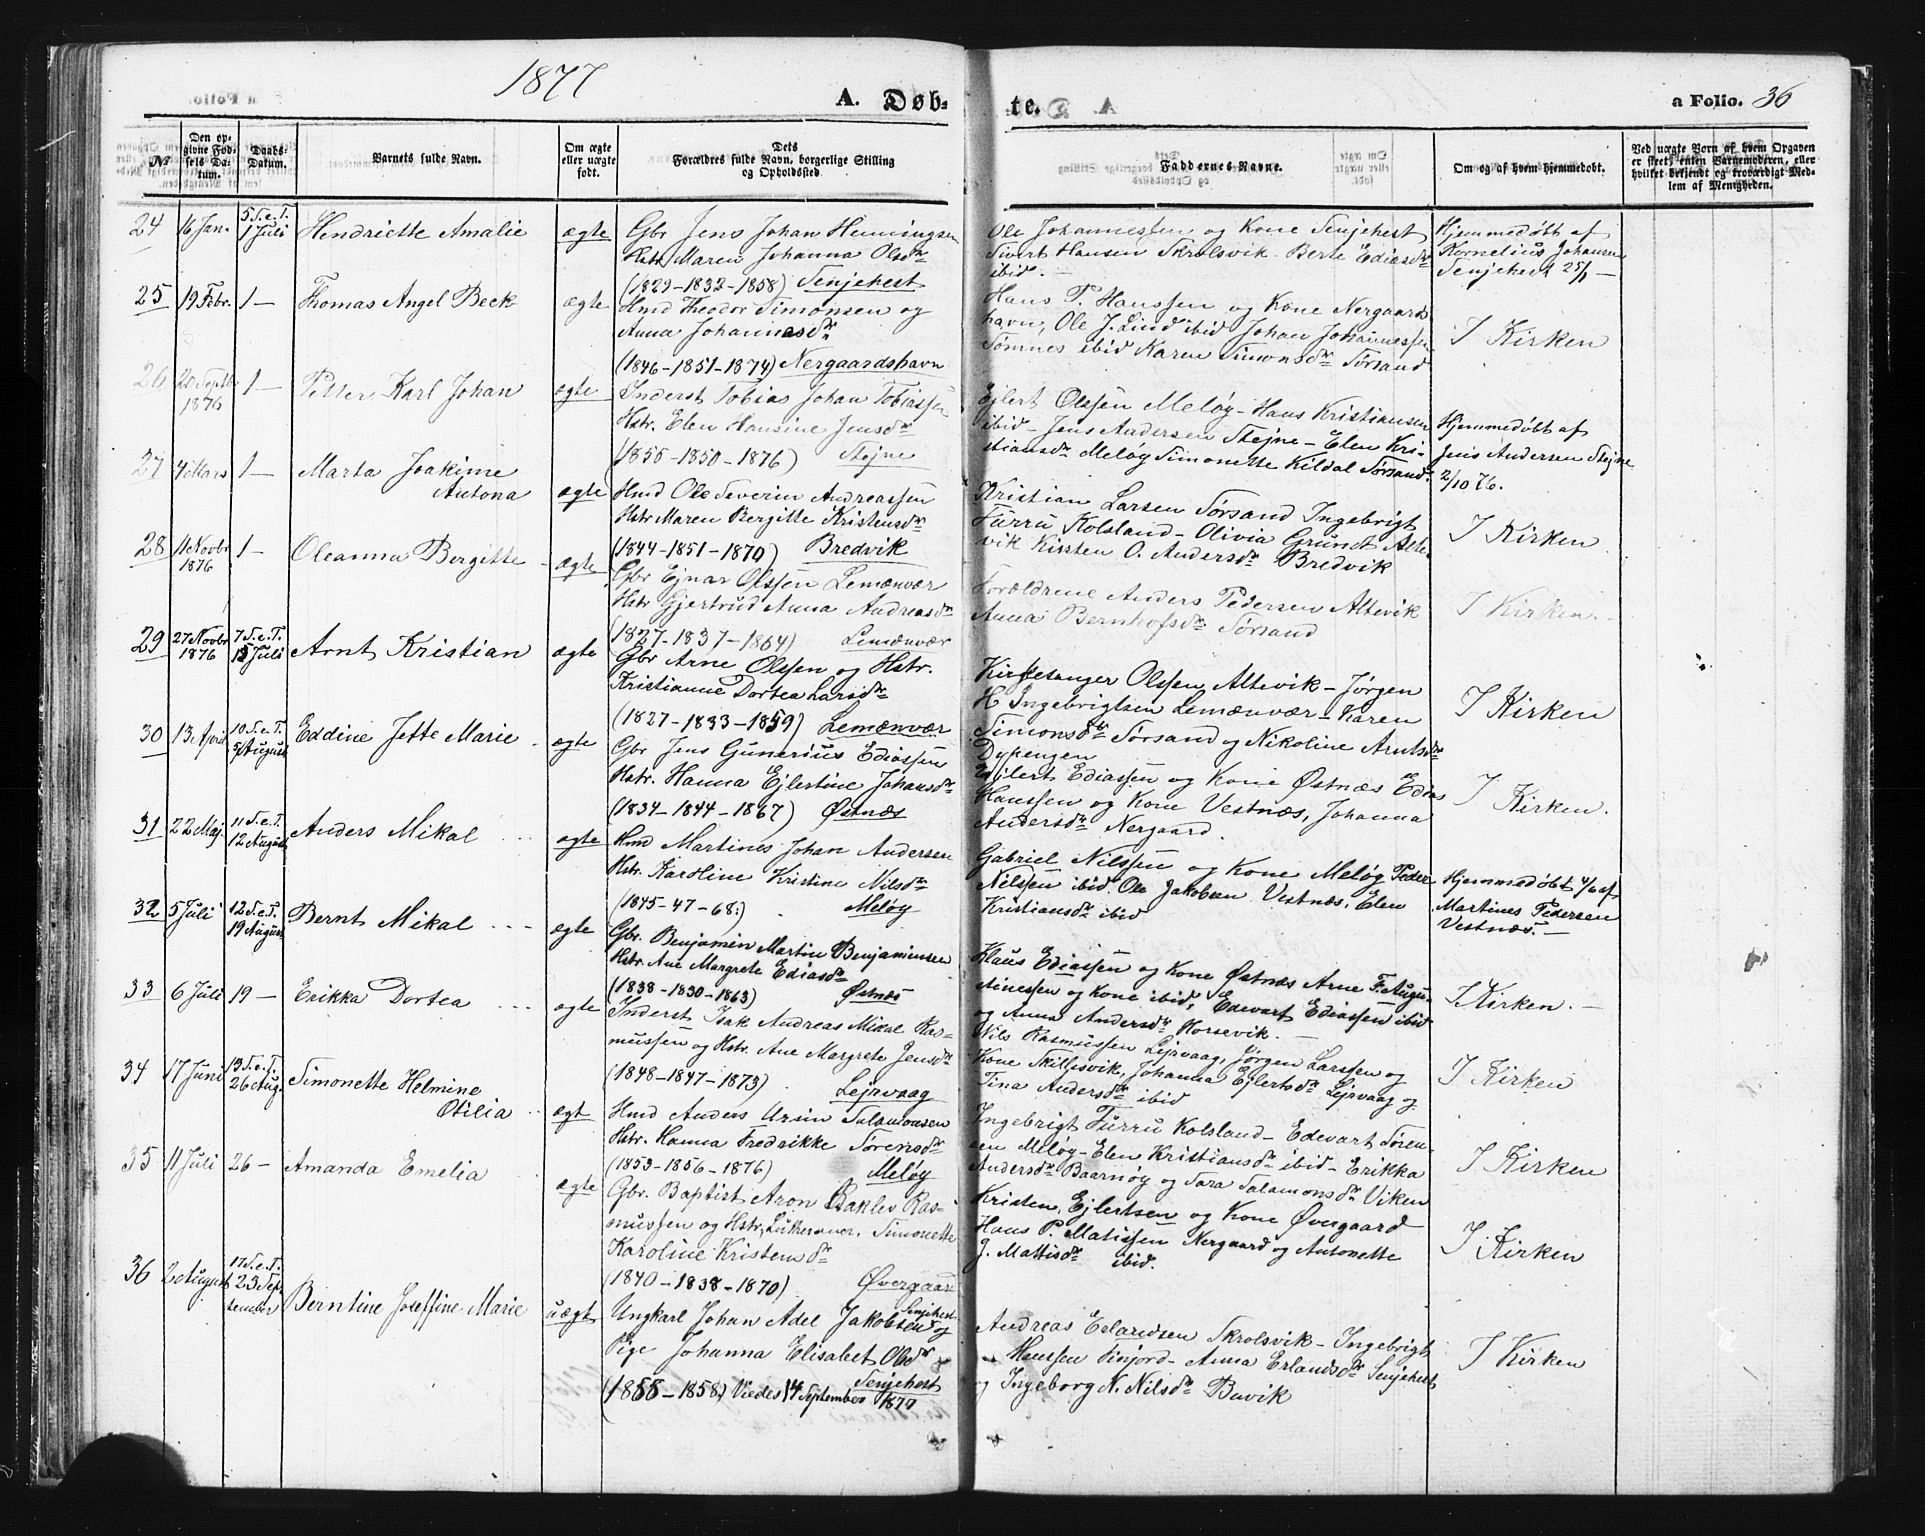 1877
A. Døb- te. a Folio. 36
No
Den op-
givne Fød-
sels Da-
tum.
Daabs-
Datum.
Barnets fulde Navn.
Om ægte
eller uægte
født.
Dets
Forældres fulde Navn, borgerlige Stilling
og Opholdssted.
Faddernes Navne.
Om og af hvem hjemmedøbt.
Ved uægte Børn af hvem Opgaven
er skeet, enten Barnemoderen, eller
hvilket bekjendt og troværdigt Med-
lem af Menigheden.
24 16 Jan. 5 S.e.T. 1 Juli Henriette Amalie ægte
Gbr Jens Johan Henningsen
Hstr Maren Johanna Olsdtr
(1829-1832-1858) Senjehest
Ole Johannessen og Kone Senjehest
Sivert Hansen Skrolsvik Berte Ediasdtr
ibid. -
Hjemmedøbt af
Kornelius Johansen
Senjehest 25/1 -
25 19 Febr. 1 - Thomas Angel Beck ægte
Hmd Theodor Simonsen og
Anna Johannesdtr
(1846-1851-1874) Nergaardshavn
Hans P. Hanssen og Kone Nergaards
havn, Ole J. Lind ibid Johan Johannessen
Sømnes ibid Karen Simonsdtr Sørsand
I Kirken
26 20 Septb 1876 1 - Petter Karl Johan ægte
Inderst Tobias Johan Tobiassen
Hstr. Elen Hansine Jensdtr
(1855-1850-1876) Stejne
Ejlert Olssen Meløy - Hans Kristiansen
ibid - Jens Andersen Stejne - Elen Kri-
stiansdtr Meløy Simonette Kildal Sørsand.
Hjemmedøbt af
Jens Andersen Stejne
2/10 76.
27 4 Mars 1 - Marta Joakime
Antona ægte
Hmd Ole Severin Andreassen
Hstr Maren Bergitte Kristensdtr
(1844-1851-1870) Bredvik
Kristian Larsen Sørsand Ingebrigt
Furru Kolsland - Olivia Grundt Alte-
vik Kirsten O. Andersdtr Bredvik
I Kirken
28 11 Novbr 1876 1 - Oleanna Bergitte ægte
Gbr Ejnar Olssen Lemænvær
Hstr Gjertrud Anna Andreasdtr
(1827-1837-1864) Lemænvær
Forældrene Anders Pedersen Altevik
Anna Bernhofsdtr Sørsand
I Kirken.
29 27 Novbr 1876 7 S.e.T. 15 Juli Arnt Kristian ægte
Gbr Arne Olssen og Hstr.
Kristianne Dortea Larsdtr
(1827-1833-1859) Lemænvær
Kirkesanger Olssen Altevik - Jørgen
H Ingebrigtsen Lemænvær - Karen
Simonsdtr Sørsand og Nikoline Arntsdtr
Dypengen
I Kirken
30 13 April 10 S.e.T. 5 August Eddine Jette Marie ægte
Gbr Jens Gunerius Ediassen
Hstr. Hanna Ejlertine Johansdtr
(1834-1844-1867) Østnæs
Ejlert Ediassen og Kone Østnæs Edias
Hanssen og Kone Vestnæs, Johanna
Andersdtr Nergaard.
I Kirken.
31 22 Maj. 11 S.e.T. 12 August Anders Mikal ægte
Hmd Martines Johan Andersen
Hstr. Karoline Kristine Nilsdtr
(1845-47-68.) Meløy
Gabriel Nilssen og Kone Meløy Peder
Nilssen ibid. Ole Jakobsen Vestnæs, Elen
Kristiansdtr ibid
Hjemmedøbt 4/6 af
Martines Pedersen
Vestnæs.
32 5 Juli 12 S.e.T. 19 August Bernt Mikal ægte
Gbr. Benjamin Martin Benjaminsen
Hstr. Ane Margrete Ediasdtr
(1838-1830-1863) Østnæs
Klaus Ediassen og Kone Østnæs Arne F. Augu-
stinessen og Kone ibid, Edevart Ediassen ibid
og Anna Andersdtr Horsevik. -
I Kirken. -
33 6 Juli 19 - Erikka Dortea ægte
Inderst Isak Andreas Mikal Ras-
mussen og Hstr. Ane Margrete Jensdtr
(1848-1847-1873) Lejrvaag
Nils Rasmussen Lejrvaag, Jørgen Larssen og
Kone Skillesvik, Johanna Ejlertsdtr Lejrvaag og
Tina Andersdtr ibid
I Kirken
34 17 Juni 13 S.e.T. 26 Aug. Simonette Helmine
Otilia ægt
Hmd Anders Ursin Salamonsen
Hstr. Hanna Fredrikke Sørensdtr
(1853-1856-1876) Meløy
Ingebrigt Furru Kolsland - Edevart Søren-
sen Meløy - Elen Kristiansdtr ibid - Erikka
Andersdtr Baarnøy og Sara Salamonsdtr Viken
I Kirken
35 11 Juli 26 - Amanda Emelia ægte
Gbr. Baptist Aron Bakley Ras-
mussen og Hstr. Simonette
Karoline Kristensdtr
(1840-1838-1870) Øvergaard
Kristen Ejlertsen og Kone Øvergaard
Hans P. Matissen Nergaard og Antonette
J. Mattisdtr ibid.
I Kirken
36 2 August 17 S.e.T. 23 Sep-
tember Berntine Joseffine Marie uægt
Ungkarl Johan Adel Jakobsen Senjehest og
Pige Johanna Elisabet Olsdtr
Senjehest
(1855-1858) Viedes 14 September 1877
Andreas Erlandsen Skrolsvik - Ingebrigt
Hanssen Finjord - Anna Erlandsdtr Senjehest
og Ingeborg N. Nilsdtr Bavik
I Kirken